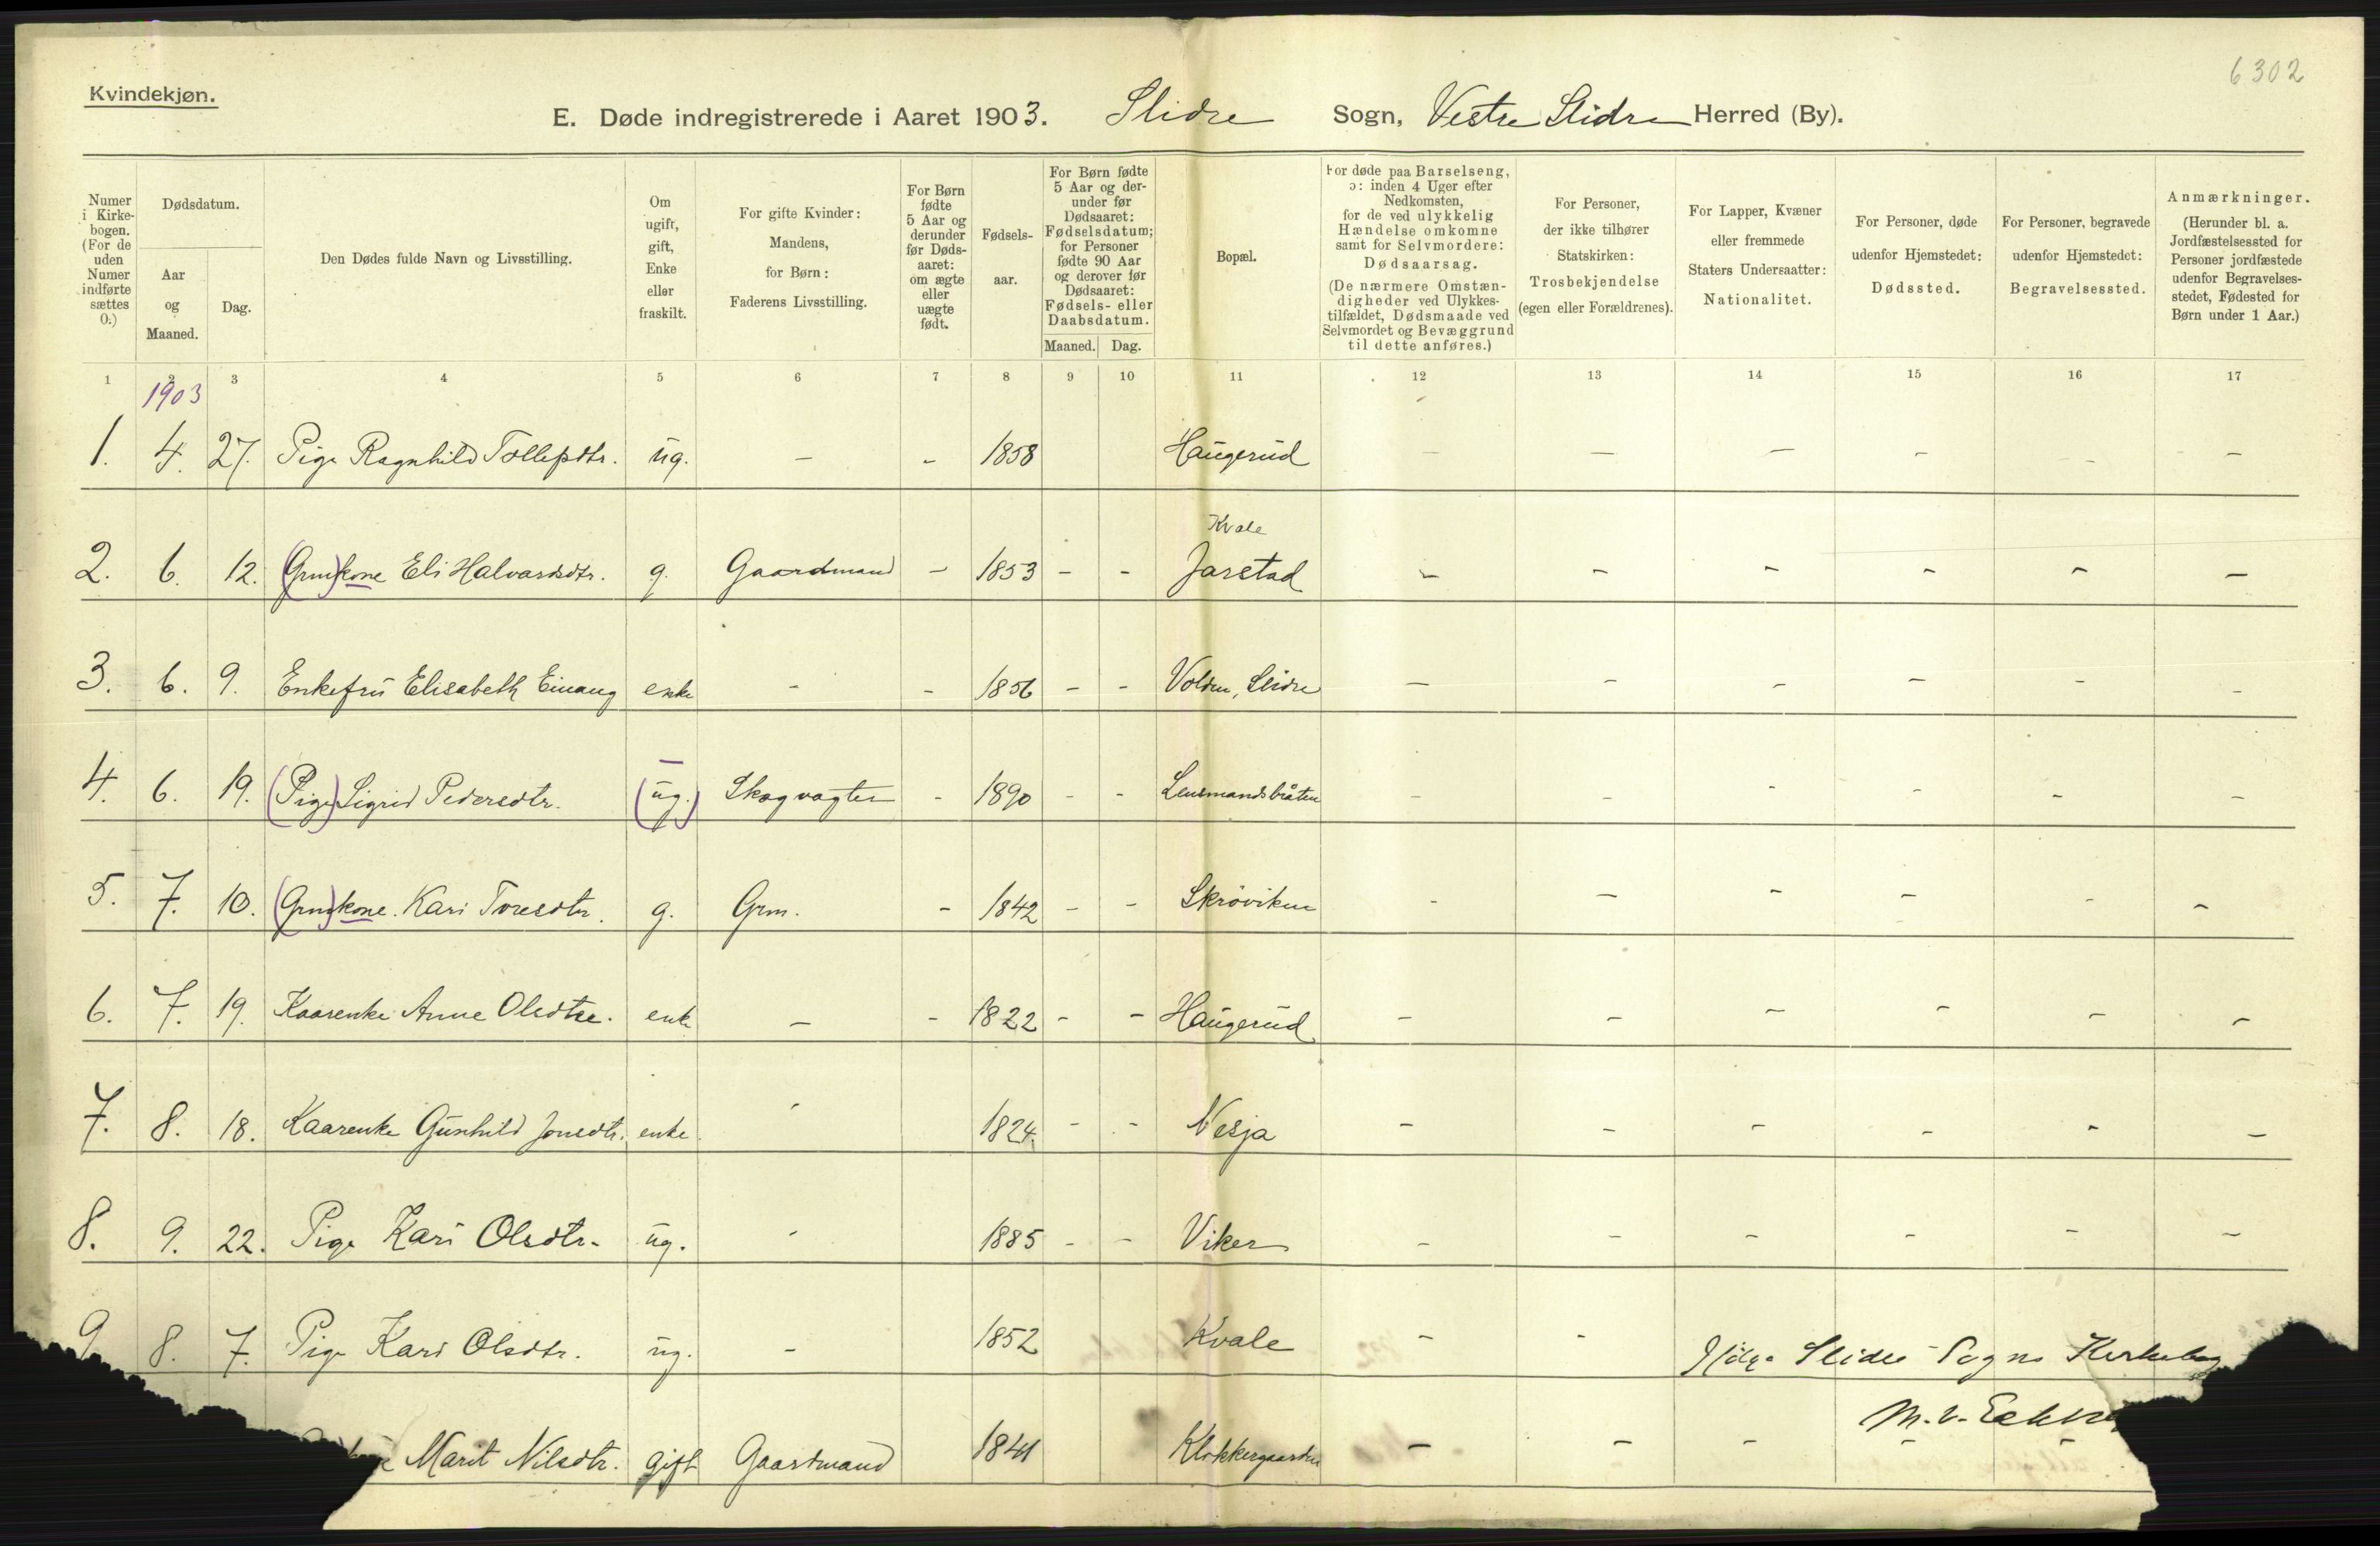 6302
Kvindekjøn.
E. Døde indregistrerede i Aaret 1903. Slidre Sogn, Vestre Slidre Herred (By).
Numer i Kirkebogen. (For de uden Numer indførte sættes 0.)
Dødsdatum.
Aar og Maaned.
Dag.
Den Dødes fulde Navn og Livsstilling.
Om ugift, gift, Enke eller fraskilt.
For gifte Kvinder: Mandens, for Børn: Faderens Livsstilling.
For Børn fødte 5 Aar og derunder før Dødsaaret: om ægte eller uægte født.
Fødselsaar.
For Børn fødte 5 Aar og derunder før Dødsaaret: Fødselsdatum; for Personer fødte 90 Aar og derover før Dødsaaret: Fødsels- eller Daabsdatum.
Maaned. Dag.
Bopæl.
For døde paa Barselseng, ɔ: inden 4 Uger efter Nedkomsten, for de ved ulykkelig Hændelse omkomne samt for Selvmordere: Dødsaarsag. (De nærmere Omstændigheder ved Ulykkestilfældet, Dødsmaade ved Selvmordet og Bevæggrund til dette anføres.)
For Personer, der ikke tilhører Statskirken: Trosbekjendelse (egen eller Forældrenes).
For Lapper, Kvæner eller fremmede Staters Undersaatter: Nationalitet.
For Personer, døde udenfor Hjemstedet: Dødssted.
For Personer, begravede udenfor Hjemstedet: Begravelsessted.
Anmærkninger. (Herunder bl. a. Jordfæstelsessted for Personer jordfæstede udenfor Begravelsesstedet, Fødested for Børn under 1 Aar.)
1 2 3 4 5 6 7 8 9 10 11 12 13 14 15 16 17
1903
1. 4. 27. Pige Ragnhild Tollefsdtr. ug. - - 1858 Haugerud - - - - - -
Kvale
2. 6. 12. (Grm)kone Eli Halvardsdtr. g. Gaardmand - 1853 - - Jarstad - - - - - -
3. 6. 9. Enkefru Elisabeth Einang enke - - 1856 - - Volden, Slidre - - - - - -
4. 6. 19. (Pige) Sigrid Pedersdtr. (ug.) Skogvogter - 1890 - - Lensmandsbråten - - - - - -
5. 7. 10. (Grms)kone. Kari Toresdtr. g. Grm. - 1842 - - Skrøviken - - - - - -
6. 7. 19. Kaarenke Anne Olsdtr. enke - - 1822 - - Haugerud - - - - - -
7. 8. 18. Kaarenke Gunhild Jonsdtr. enke - 1824 - - Nesja - - - - - -
8. 9. 22. Pige Kari Olsdtr. ug. - 1885 - - Viker - - - - - -
9 8. 7. Pige Kari Olsdtr. ug. - 1852 Kvale - - Slidre Sogns Kirkebog
Marit Nilsdtr. gift Gaardmand 1841 Klokkergaarden - - - - -